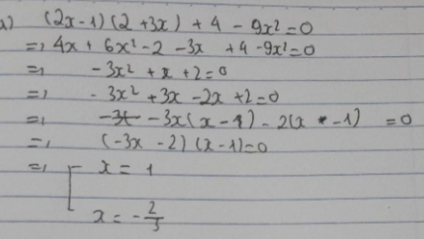 a) (2x-1)(2+3x) + 4 - 9x² = 0
=, 4x + 6x² - 2 - 3x + 4 - 9x² = 0
=, - 3x² + x + 2 = 0
=, - 3x² + 3x - 2x + 2 = 0
=, - 3x(x - 1) - 2(x - 1) = 0
=, (-3x - 2)(x - 1) = 0
=, [ x = 1
x = - 2/3